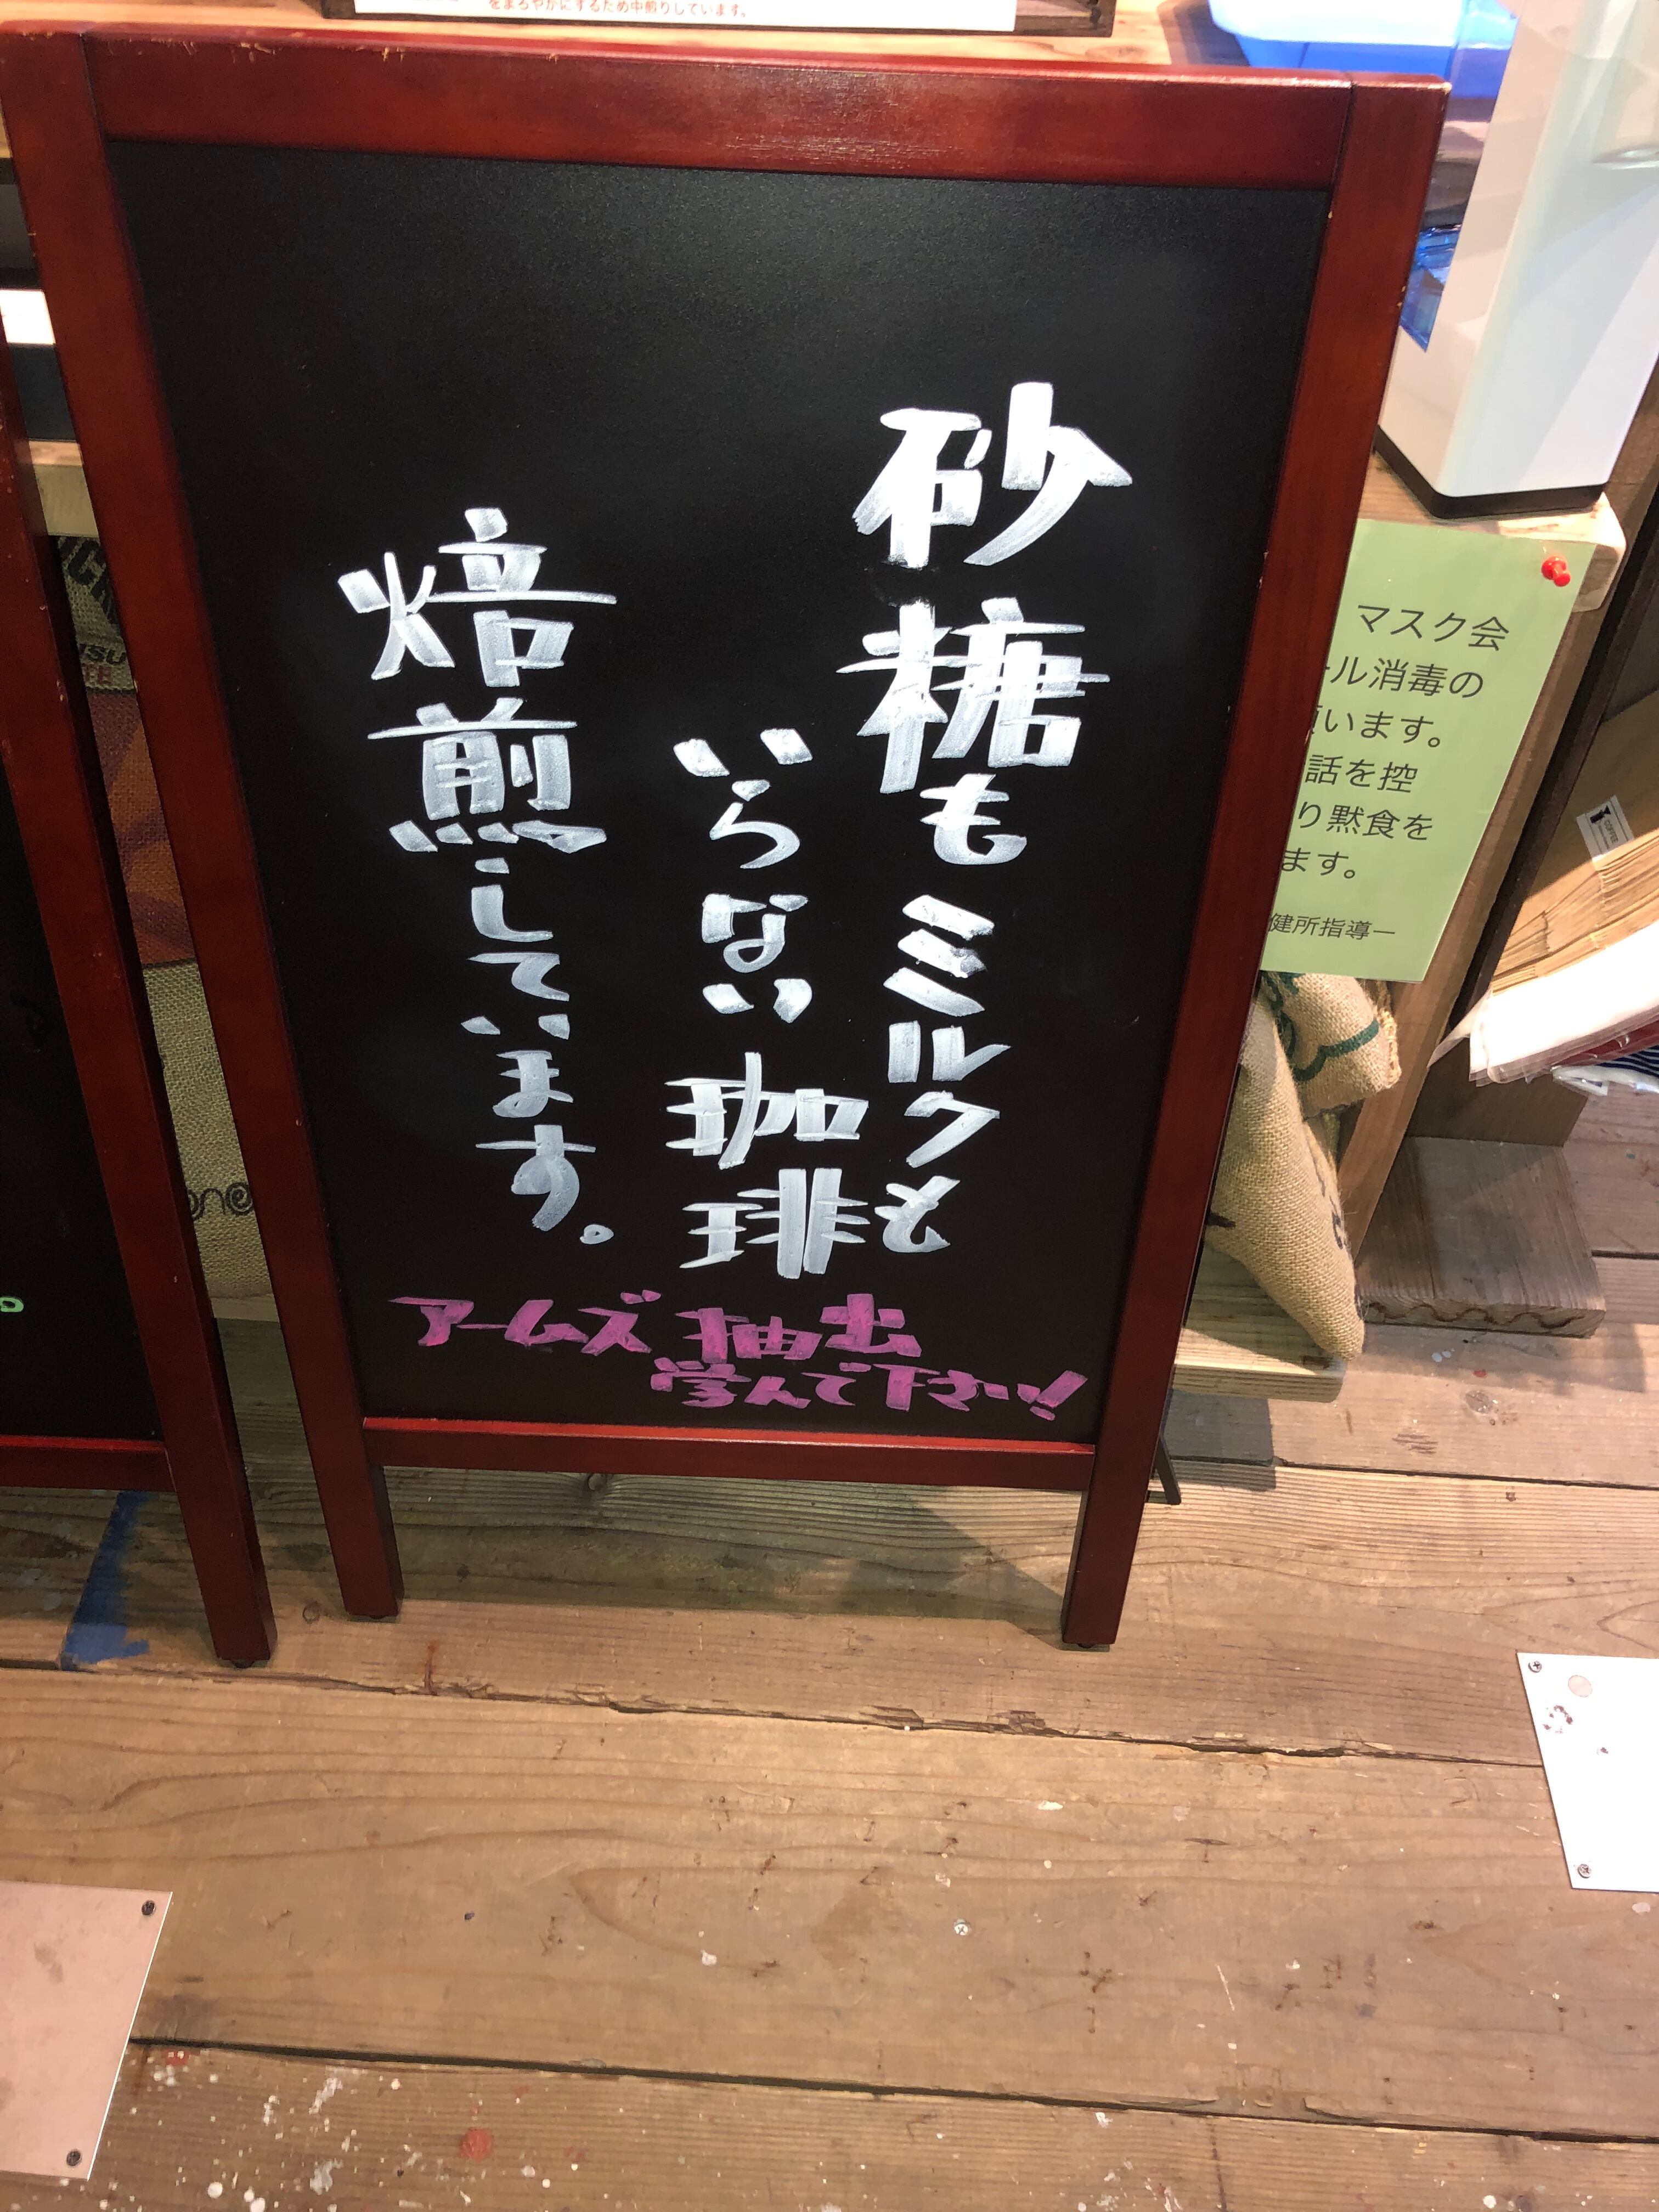 をまろやかにするため中煎りしています。
砂糖もミルクも
いらない珈琲
焙煎しています。
アームズ抽出
学んで下さい!
マスク会
ール消毒の
います。
話を控
り黙食を
ます。
健所指導ー